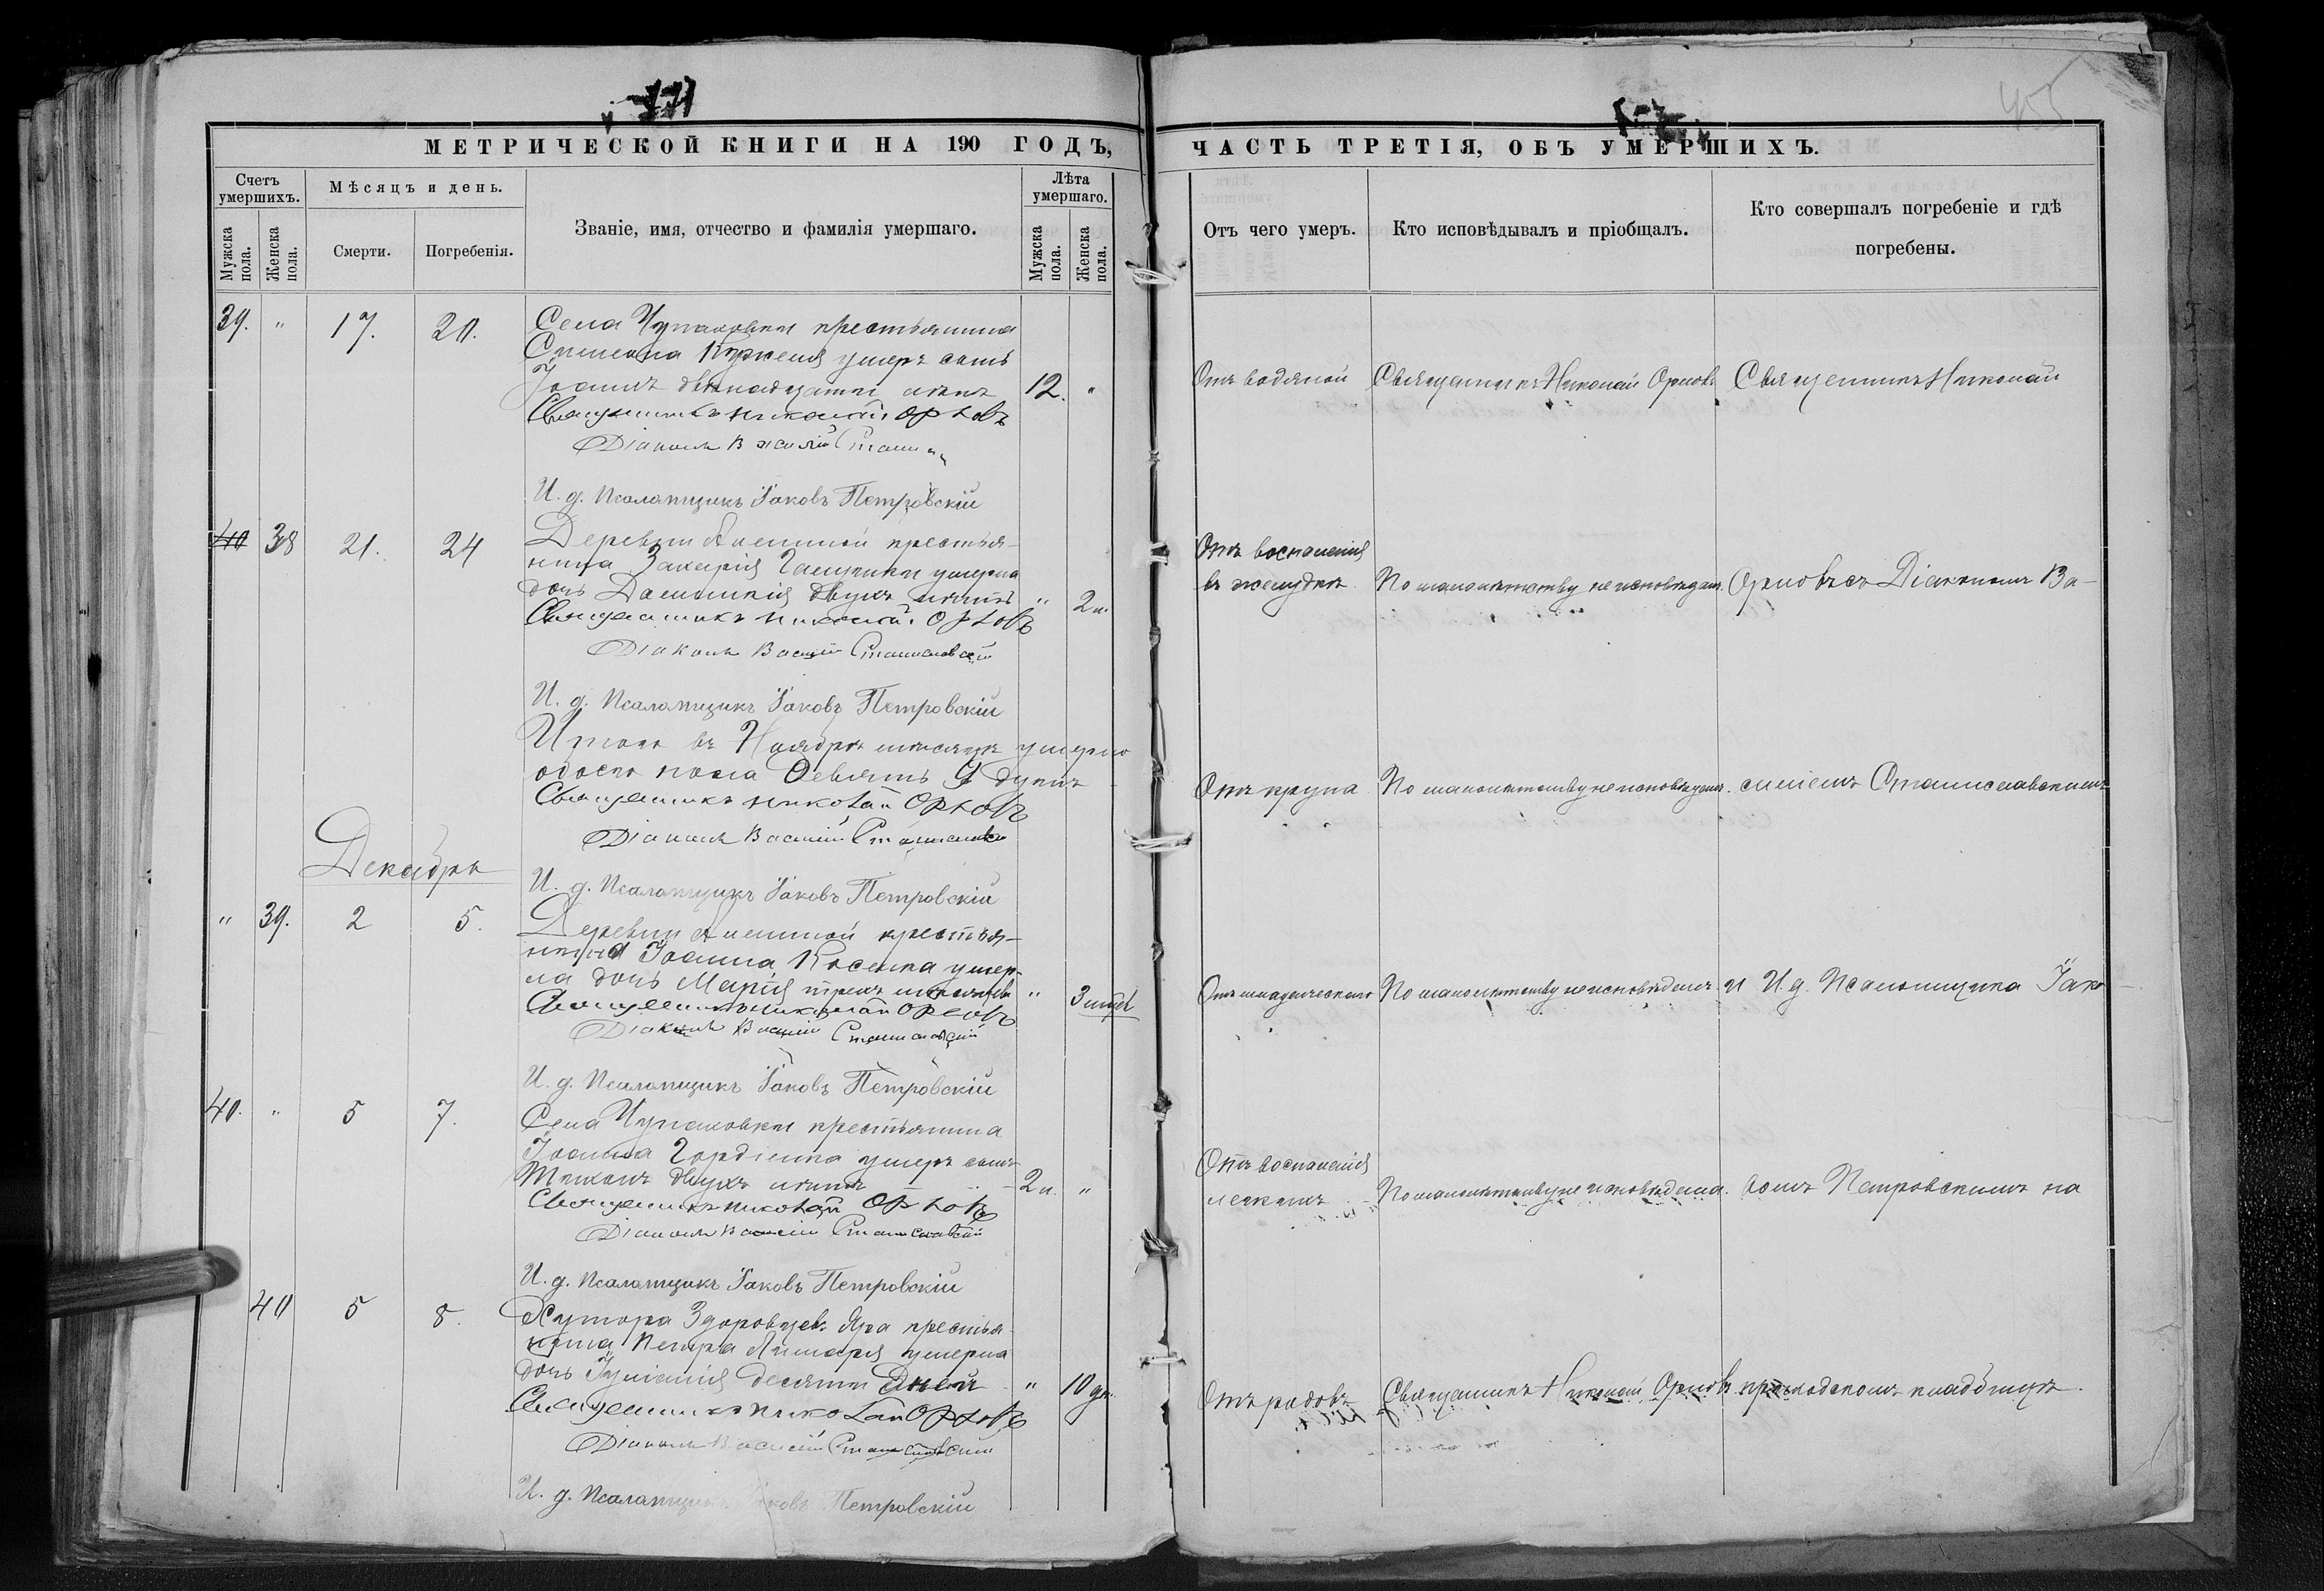 171
455
МЕТРИЧЕСКОЙ КНИГИ НА 190 ГОДЪ,
ЧАСТЬ ТРЕТІЯ, ОБЪ УМЕРШИХЪ.
Счетъ умершихъ.
Мѣсяцъ и день.
Званіе, имя, отчество и фамилія умершаго.
Лѣта умершаго.
Мужска пола.
Женска пола.
Смерти.
Погребенія.
Мужска пола.
Женска пола.
Отъ чего умеръ.
Кто исповѣдывалъ и пріобщалъ.
Кто совершалъ погребеніе и гдѣ
погребены.
39. " 17. 20.
Села Чупаховки крестьянина
Симеона умеръ сынъ
Іоаннъ двѣнадцати лѣтъ 12. "
Священникъ Николай Орловъ
Діаконъ Василій
И. д. Псаломщикъ Іаковъ Петровскій
Отъ водяной
Священникъ Николай Орловъ
Священникъ Николай
40 38 21. 24
Деревни крестья-
нина Захарія умерла
дочь Домникія двухъ лѣтъ " 2 л.
Священникъ Николай Орловъ
Діаконъ Василій Станиславскій
И. д. Псаломщикъ Іаковъ Петровскій
Отъ воспаленія
въ желудкѣ
По малолѣтству не исповѣдан.
Орловъ съ Діакономъ Ва-
Итого въ Ноябрѣ мѣсяцѣ умерло
обоего пола девять 9 душъ
Священникъ Николай Орловъ
Діаконъ Василій Станиславскій
И. д. Псаломщикъ Іаковъ Петровскій
Отъ крупа
По малолѣтству не исповѣдан.
силіемъ Станиславскимъ
Декабрь
" 39. 2 5.
Деревни крестья-
нина Іоанна Косенка умер-
ла дочь Марія трехъ мѣсяцевъ " 3 мѣс
Священникъ Николай Орловъ
Діаконъ Василій Станиславскій
И. д. Псаломщикъ Іаковъ Петровскій
Отъ младенческаго
По малолѣтству не исповѣдана
и И. д. Псаломщика Іако
40. " 5 7.
Села Чупаховки крестьянина
Іоанна Гордіенка умеръ сынъ
Тихонъ двухъ лѣтъ 2 л. "
Священникъ Николай Орловъ
Діаконъ Василій Станиславскій
И. д. Псаломщикъ Іаковъ Петровскій
Отъ воспаленія
легкихъ
По малолѣтству не исповѣдана.
вомъ Петровскимъ на
40 5 8.
Хутора Яра крестья-
нина Петра Лимаря умерла
дочь Іуліанія десяти дней " 10 дн.
Священникъ Николай Орловъ
Діаконъ Василій Станиславскій
И. д. Псаломщикъ Іаковъ Петровскій
Отъ родовъ
Священникъ Николай Орловъ
приходскомъ кладбищѣ.